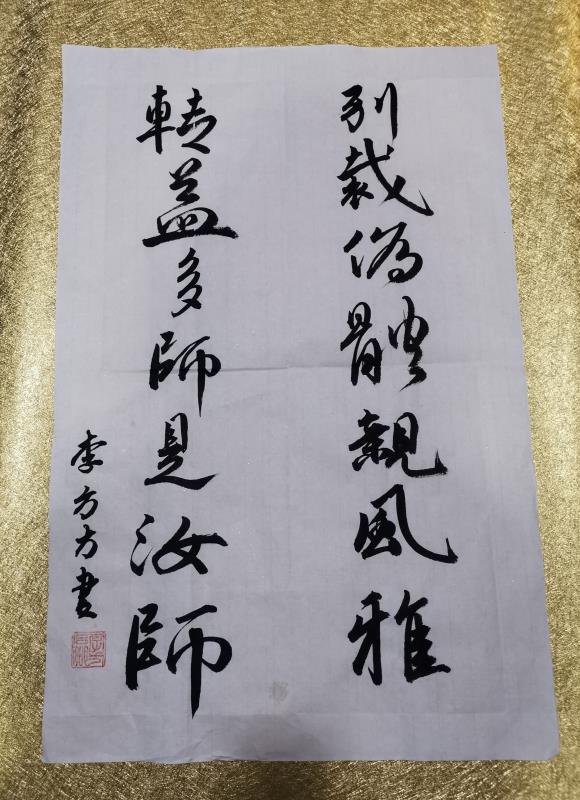 別裁偽體親風雅
轉益多師是汝師
李方方書